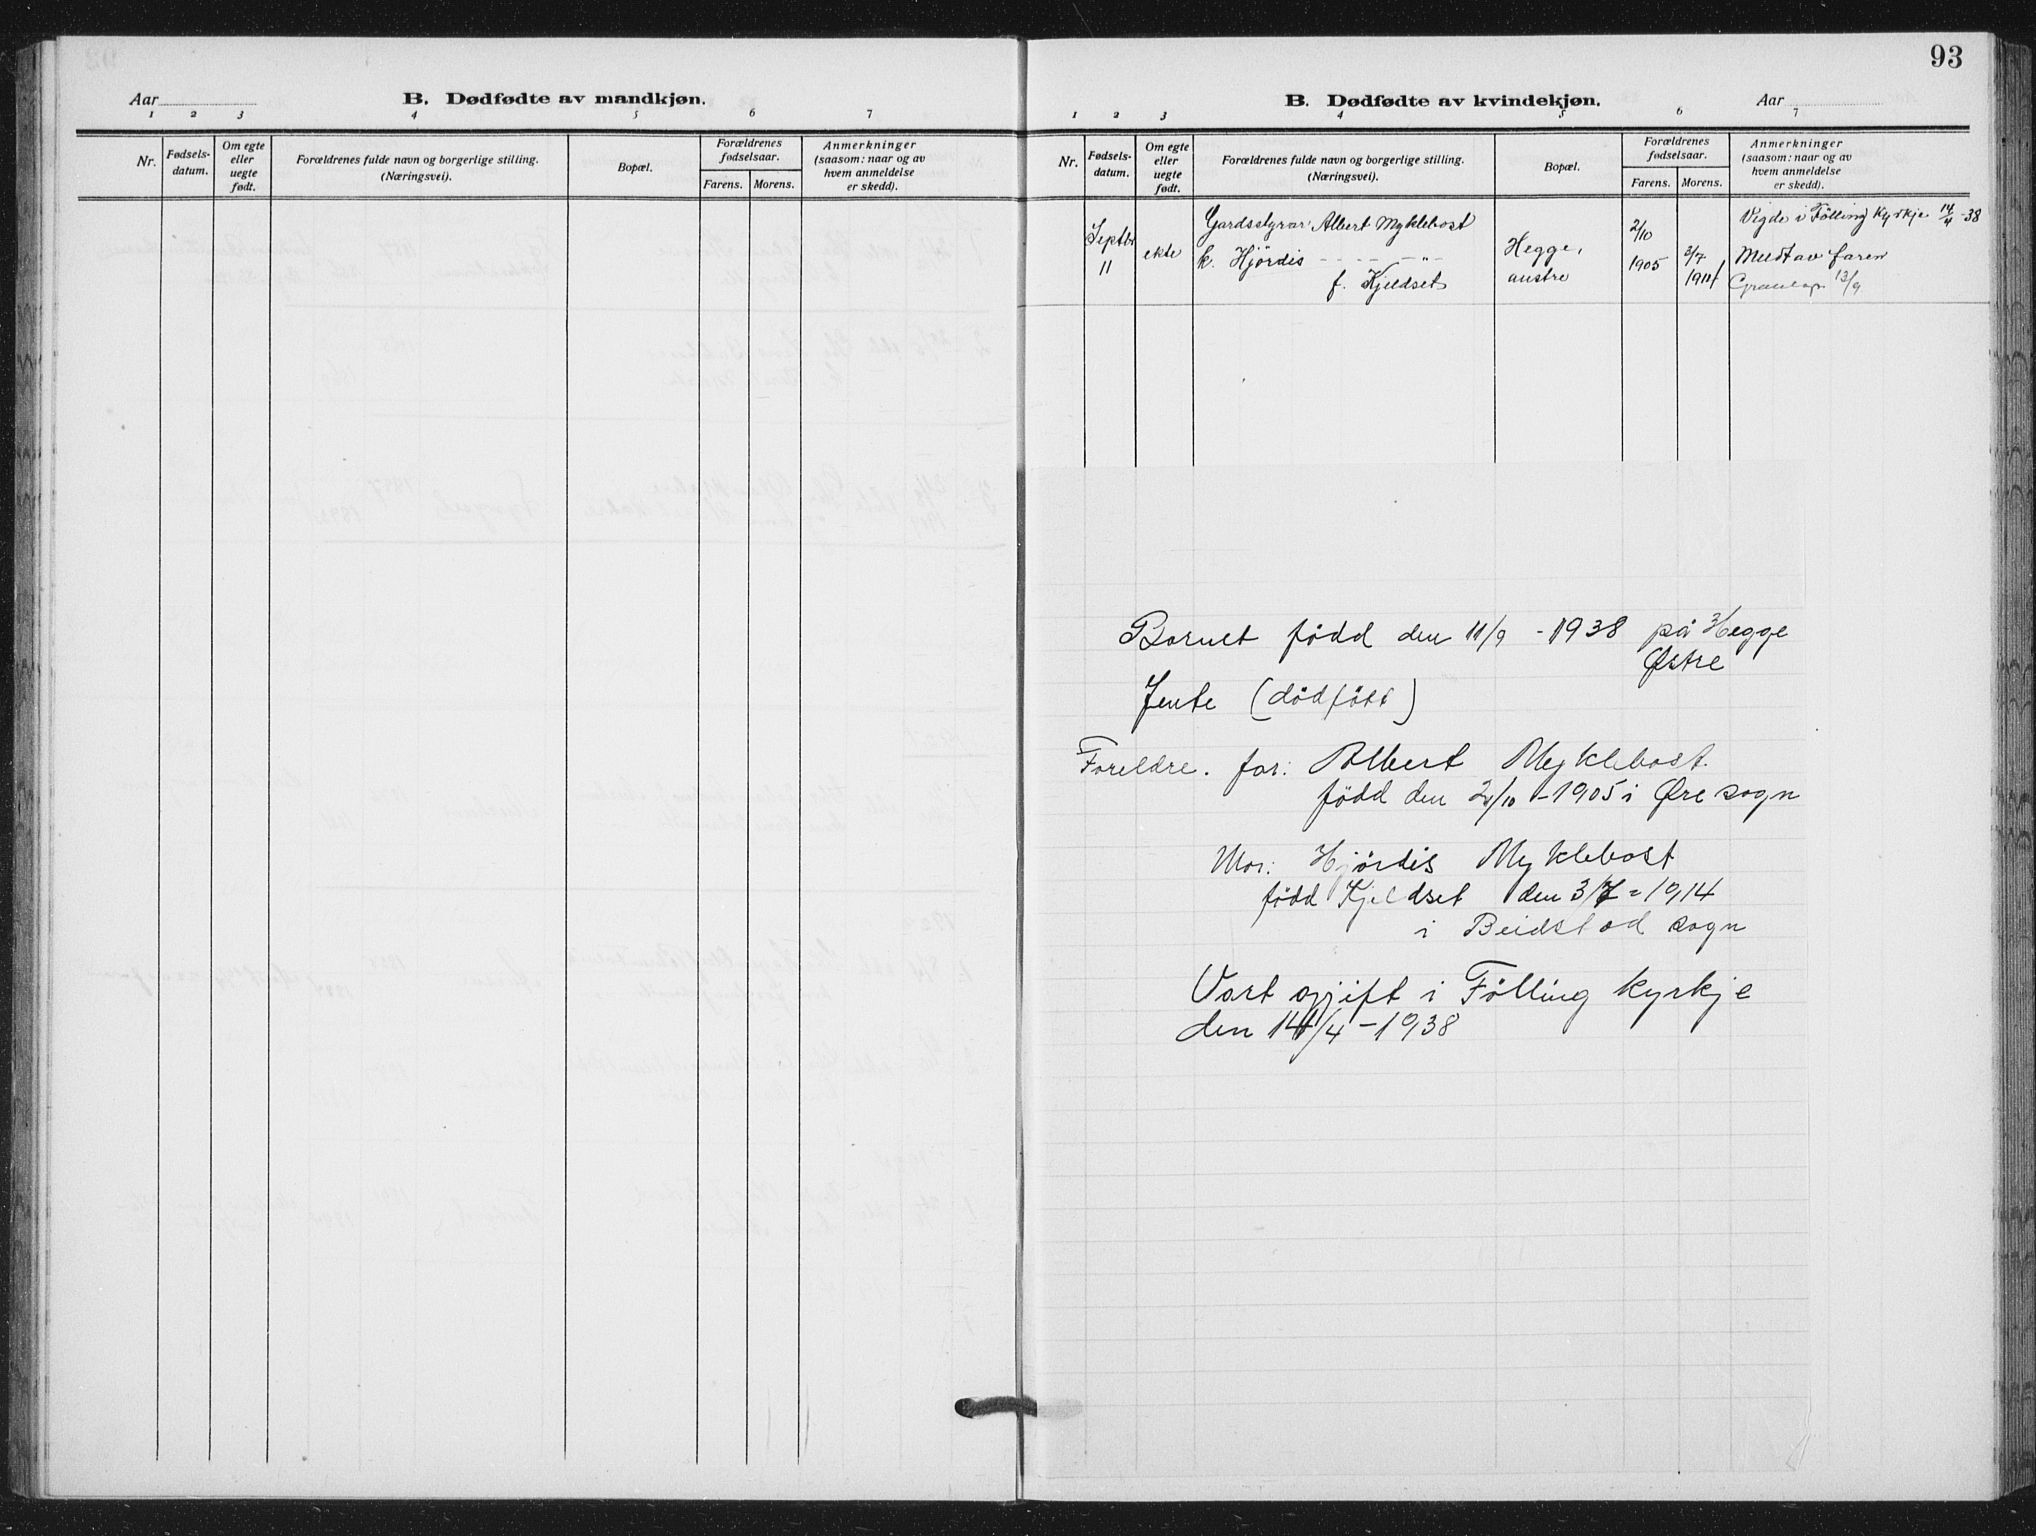 Aar
B. Dødfødte av mandkjøn.
1 2 3 4 5 6 7
Nr.
Fødsels-
datum.
Om egte
eller
uegte
født.
Forældrenes fulde navn og borgerlige stilling.
(Næringsvei).
Bopæl.
Forældrenes
fødselsaar.
Farens. Morens.
Anmerkninger
(saasom: naar og av
hvem anmeldelse
er skedd).
93
B. Dødfødte av kvindekjøn.
Aar
1 2 3 4 5 6 7
Nr.
Fødsels-
datum.
Om egte
eller
uegte
født.
Forældrenes fulde navn og borgerlige stilling.
(Næringsvei).
Bopæl.
Forældrenes
fødselsaar.
Farens. Morens.
Anmerkninger
(saasom: naar og av
hvem anmeldelse
er skedd).
Septbr
11
ekte
Gardsstyrar Albert Myklebost
k. Hjördis - - - - - " -
f. Kjeldset
Hegge,
austre
2/10
1905
3/7
1914
Vigde i Fölling Kyrkje 14/4 -38
Meldt av faren
13/9
Bornet född den 11/9 - 1938 på Hegge
Østre
Jente (dödfött)
Foreldre. far: Albert Myklebost.
född den 2/10 - 1905 i Øre sogn
Mor: Hjørdis Myklebost
född Kjeldset den 3/7 = 1914
i Beidstad sogn
Vart gjift i Fölling kyrkje
den 14/4 - 1938